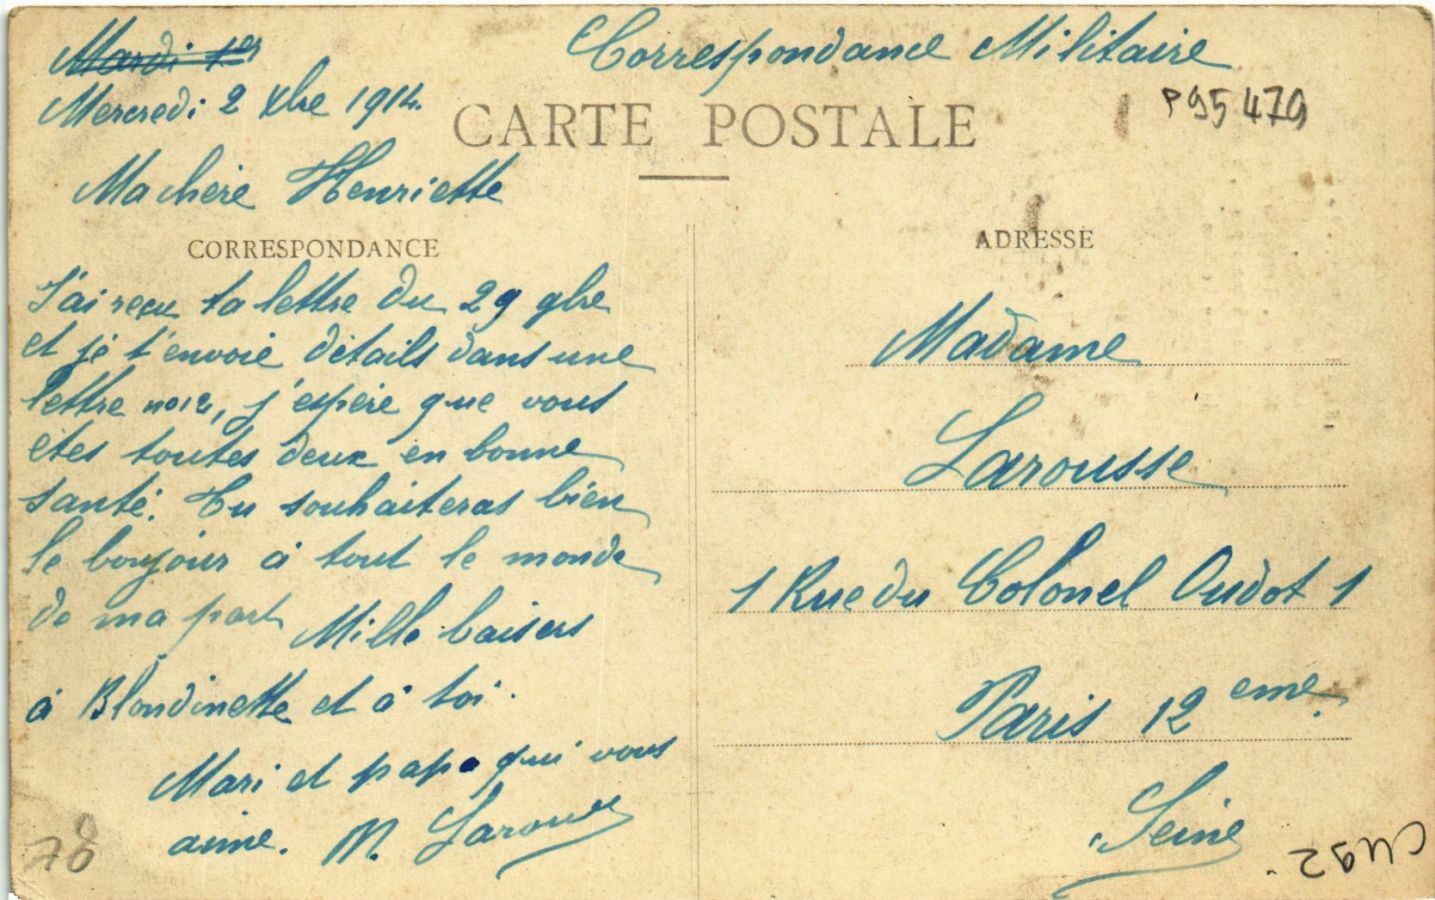 Mardi 1er
Mercredi 2 Xbre 1914.
Correspondance Militaire
P95479
CARTE POSTALE
Ma chère Henriette
CORRESPONDANCE
J'ai reçu ta lettre du 29 9bre
et je t'envoie détails dans une
lettre no 12, j'espère que vous
etes toutes deux en bonne
santé. Tu souhaiteras bien
le bonjour à tout le monde
de ma part Mille baisers
à Blondinette et à toi.
Mari et papa qui vous
aime. M. Larousse
78
ADRESSE
Madame
Larousse
1 Rue du Colonel Oudot 1
Paris 12eme.
Seine